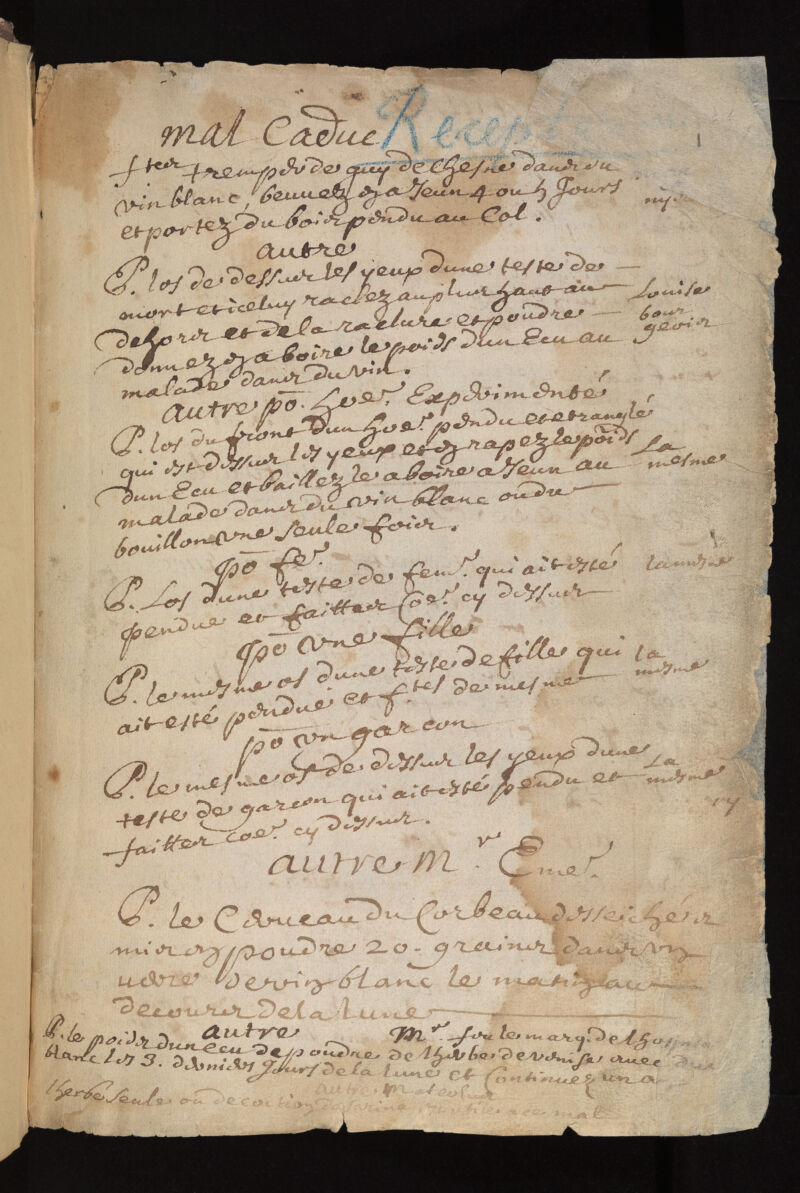 mal Caduc Recept
1
f.tes tremper de guy de chesne dans du
vin blanc, beuvez en a Jeun 4 ou 5 Jours
et portez du bois pendu au Col.
autre
P. los de dessur les yeux dune teste de
mort et iceluy raclez au plus haut au
dehors et de la raclure et poudre
donnez en a boire le poids dun Ecu au
malade dans du vin.
Louise
bour
geois
autre po. hoe. Experimenté
P. los du front dun hoe. pendu et etranglé
qui est dessur les yeux et en rapez le poids
dun Ecu et baillez le a boire a Jeun au
malade dans du vin blanc ou du
bouillon une seule fois.
La
mesme
po fe.
P. Los dune teste de feme. qui ait esté
pendue et faittes Coe. cy dessur
la mesme
po une fille
P. le mesme os dune teste de fille qui
ait esté pendue et f.tes de mesme
la
mesme
po un garcon
P. le mesme os de dessur les yeux dune
teste de garcon qui ait esté pendu et
faittes Coe. cy dessur.
La
mesme
autre Mr. Eme.
P. le Cerveau du Corbeau desseiché et
mis en poudre 20. grains dans un
verre de vin blanc le matin au
decours de la lune
autre Mr. le marq. de
P. le poids dun Ecu de poudre de lherbe de venise avec du
blanc les 3. derniers Jours de la lune et Continuez un a
autre
therbe seule ou decoction utile a ce mal